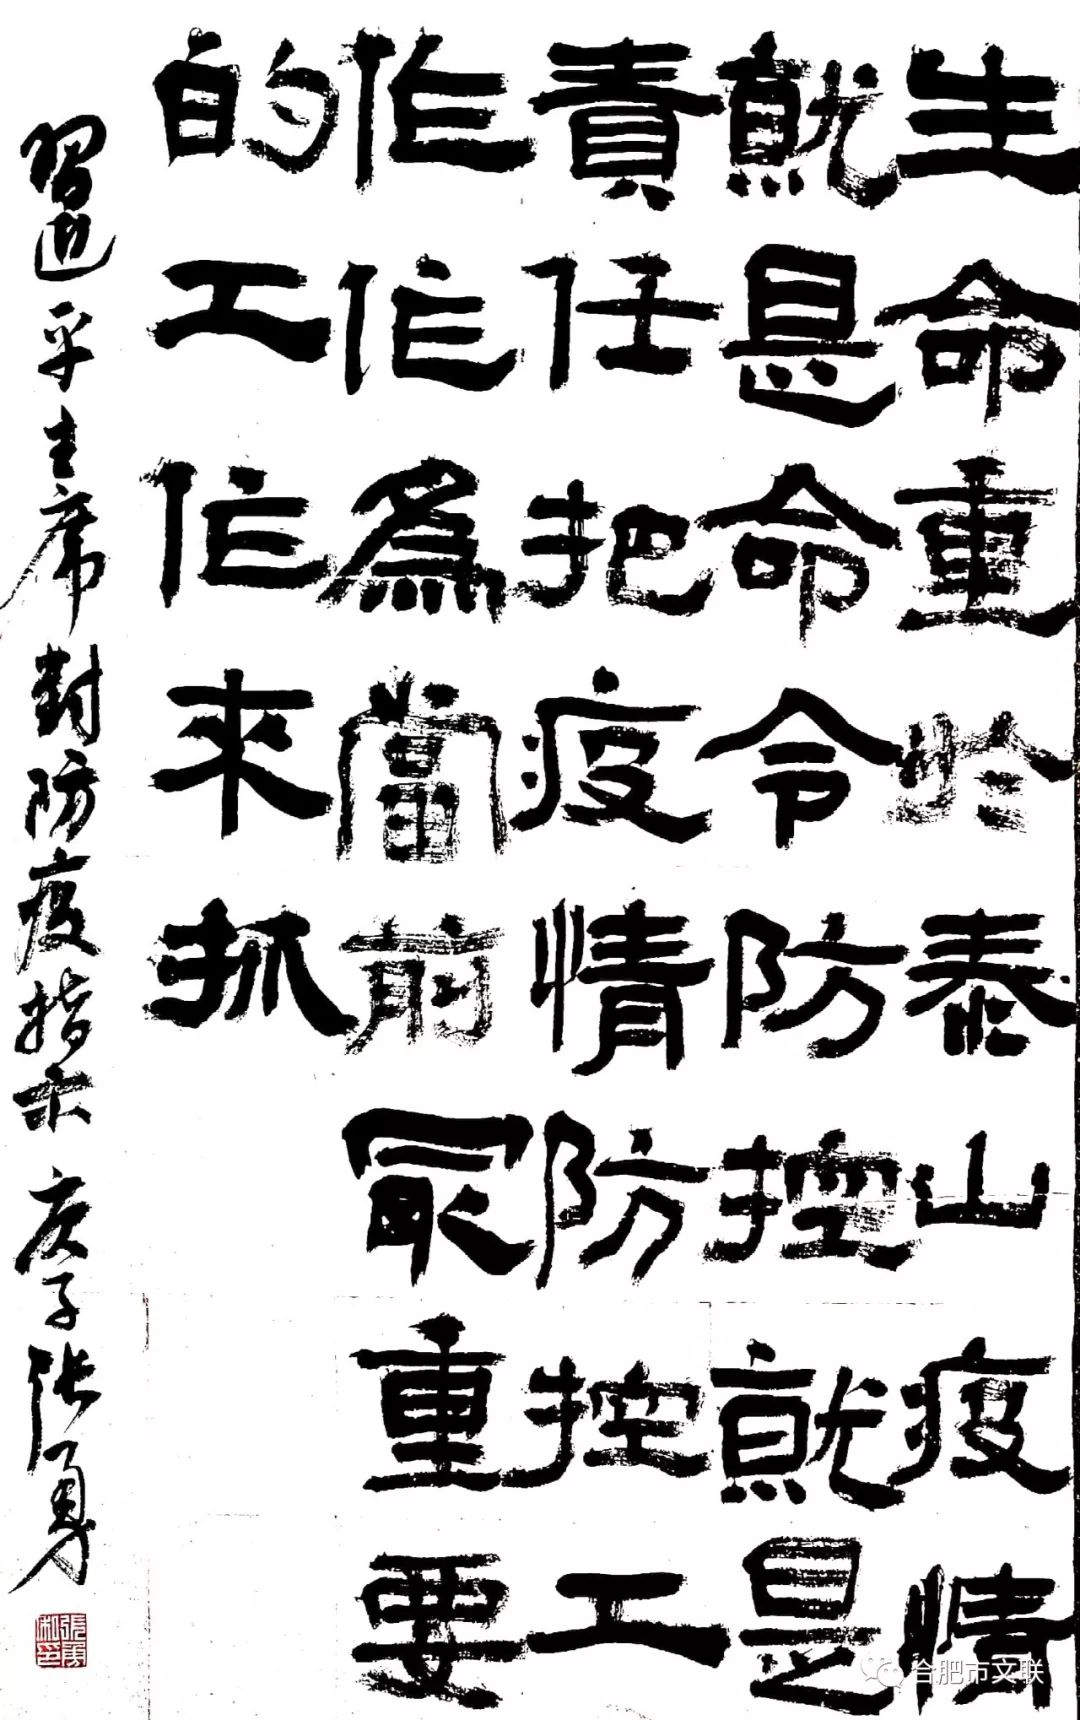 生命重於泰山疫情
就是命令防控就是
責任把疫情防控工
作作為當前最重要
的工作來抓
習近平主席對防疫指示 庚子張勇
張勇私印
合肥市文联